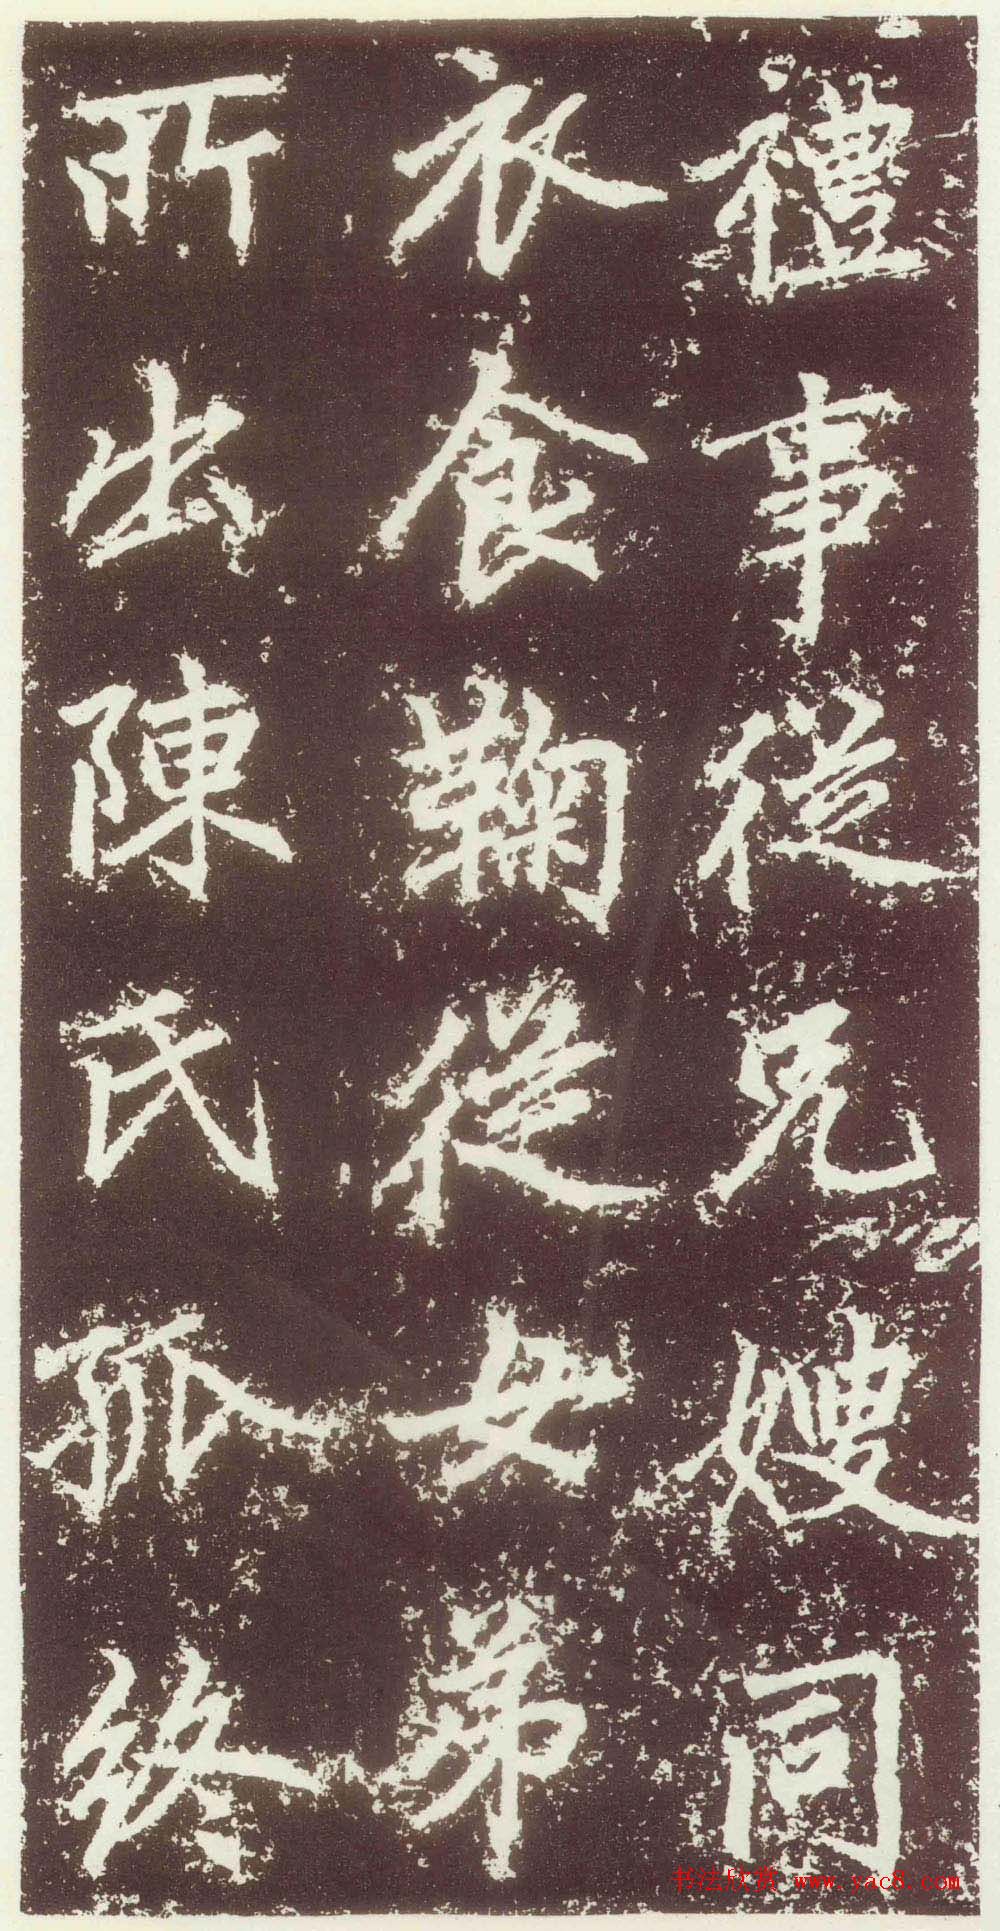 禮事從兄嫂同
衣食鞠從女弟
所出陳氏孤終
书法欣赏 www.yac8.com